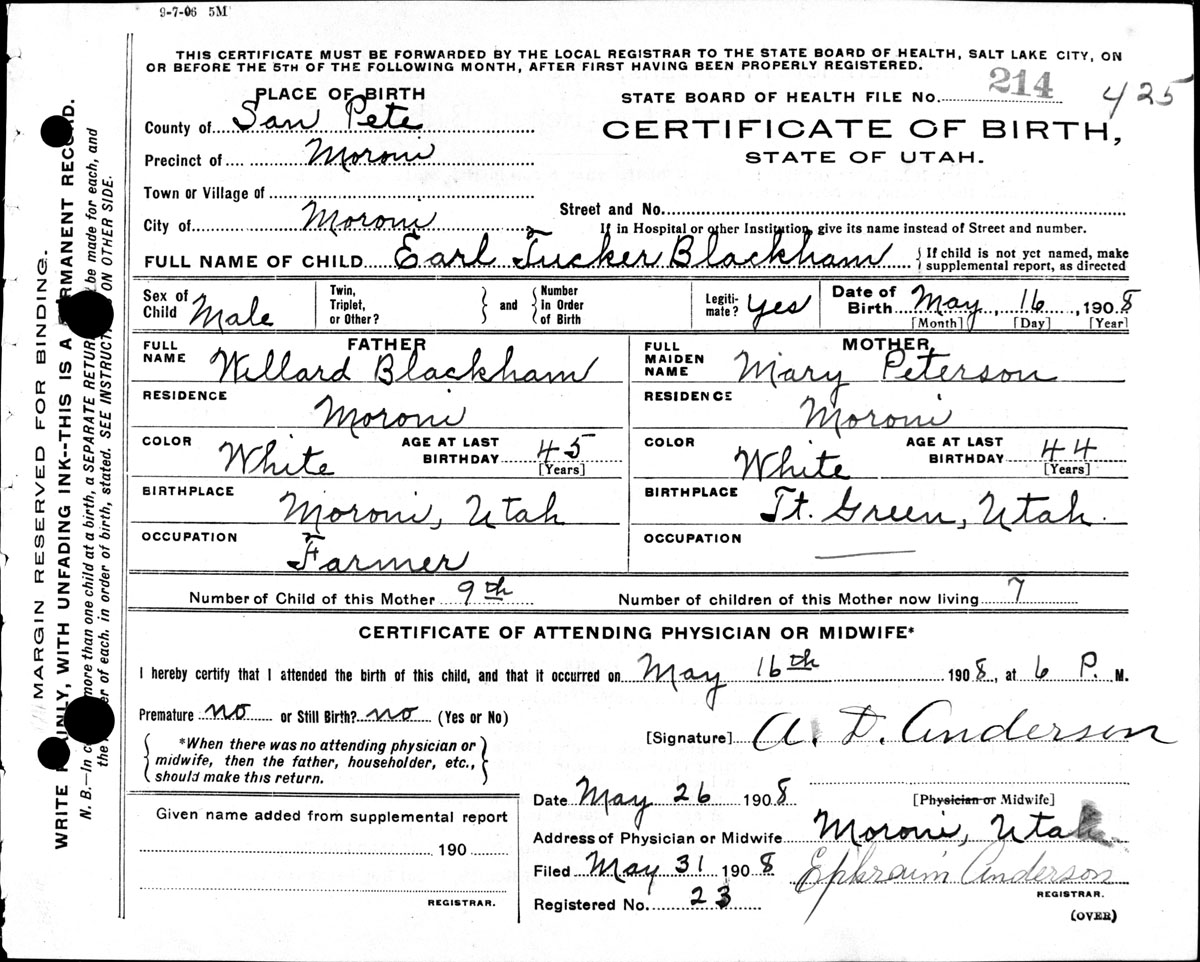 9-7-06 5M
THIS CERTIFICATE MUST BE FORWARDED BY THE LOCAL REGISTRAR TO THE STATE BOARD OF HEALTH, SALT LAKE CITY, ON
OR BEFORE THE 5TH OF THE FOLLOWING MONTH, AFTER FIRST HAVING BEEN PROPERLY REGISTERED.
PLACE OF BIRTH
STATE BOARD OF HEALTH FILE No. 214 425
County of San Pete
CERTIFICATE OF BIRTH,
Precinct of Moroni
STATE OF UTAH.
Town or Village of
City of Moroni
Street and No.
If in Hospital or other Institution, give its name instead of Street and number.
FULL NAME OF CHILD Earl Tucker Blackham { If child is not yet named, make supplemental report, as directed
Sex of Child Male
Twin, Triplet, or Other? } and { Number In Order of Birth
Legiti-mate? Yes
Date of Birth May, 16, 1908
[Month] [Day] [Year]
FATHER
FULL NAME Willard Blackham
RESIDENCE
Moroni
COLOR White AGE AT LAST BIRTHDAY 45
[Years]
BIRTHPLACE
Moroni, Utah
OCCUPATION
Farmer
MOTHER
FULL MAIDEN NAME Mary Peterson
RESIDENCE
Moroni
COLOR White AGE AT LAST BIRTHDAY 44
[Years]
BIRTHPLACE
Ft. Green, Utah.
OCCUPATION
Number of Child of this Mother 9th Number of children of this Mother now living 7
CERTIFICATE OF ATTENDING PHYSICIAN OR MIDWIFE*
I hereby certify that I attended the birth of this child, and that it occurred on May 16th 1908, at 6 P. M.
Premature no or Still Birth? no (Yes or No)
*When there was no attending physician or
midwife, then the father, householder, etc.,
should make this return.
[Signature] A. D. Anderson
Date May 26 1908 [Physician or Midwife]
Address of Physician or Midwife Moroni, Utah
Filed May 31 1908 Ephraim Anderson
REGISTRAR.
Registered No. 23
(OVER)
Given name added from supplemental report
190
REGISTRAR.
MARGIN RESERVED FOR BINDING.
WRITE INLY, WITH UNFADING INK--THIS IS A RMANENT RECORD.
N. B.—In c more than one child at a birth, a SEPARATE RETUR be made for each, and
the er of each, in order of birth, stated. SEE INSTRUCT ON OTHER SIDE.